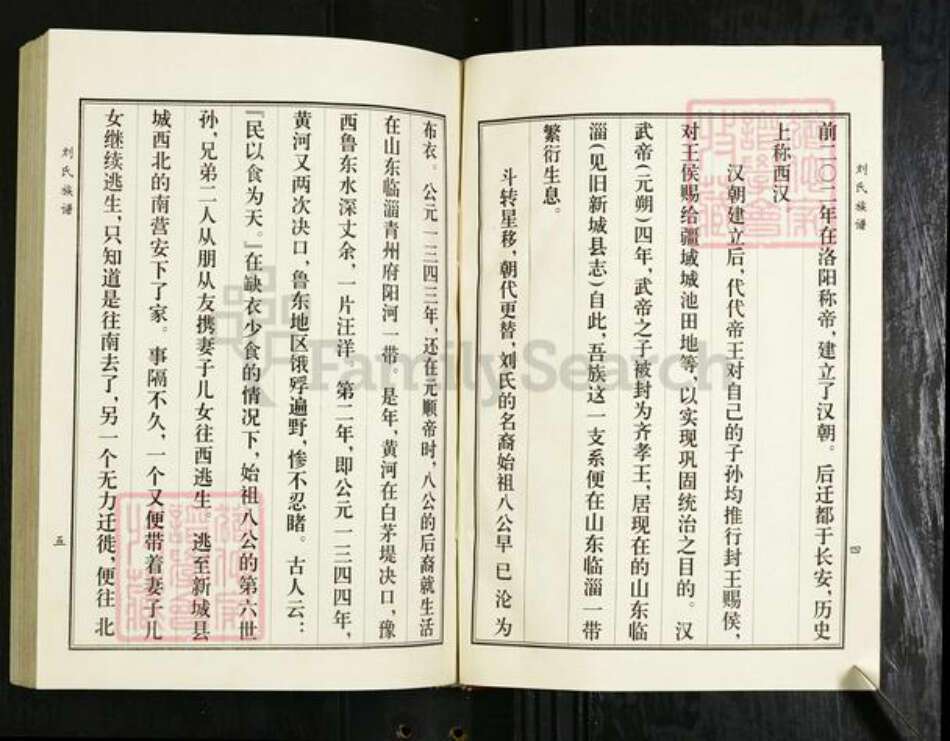 刘氏族谱
前二〇二年在洛阳称帝，建立了汉朝。后迁都于长安，历史
上称西汉。
汉朝建立后，代代帝王对自己的子孙均推行封王赐侯，
对王侯赐给疆域城池田地等，以实现巩固统治之目的。汉
武帝（元朔）四年，武帝之子被封为齐孝王，居现在的山东临
淄（见旧新城县志）自此，吾族这一支系便在山东临淄一带
繁衍生息。
斗转星移，朝代更替，刘氏的名裔始祖八公早已沦为
四
布衣。公元一三四三年，还在元顺帝时，八公的后裔就生活
在山东临淄青州府阳河一带。是年，黄河在白茅堤决口，豫
西鲁东水深丈余，一片汪洋。第二年，即公元一三四四年，
黄河又两次决口，鲁东地区饿殍遍野，惨不忍睹。古人云：
『民以食为天。』在缺衣少食的情况下，始祖八公的第六世
孙，兄弟二人从朋从友携妻子儿女往西逃生 逃至新城县
城西北的南营安下了家。事隔不久，一个又便带着妻子儿
女继续逃生，只知道是往南去了，另一个无力迁徙，便往北
刘氏族谱
五
FamilySearch